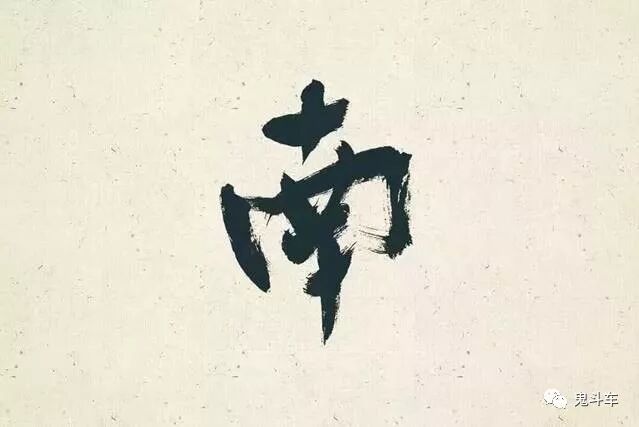 南
鬼斗车